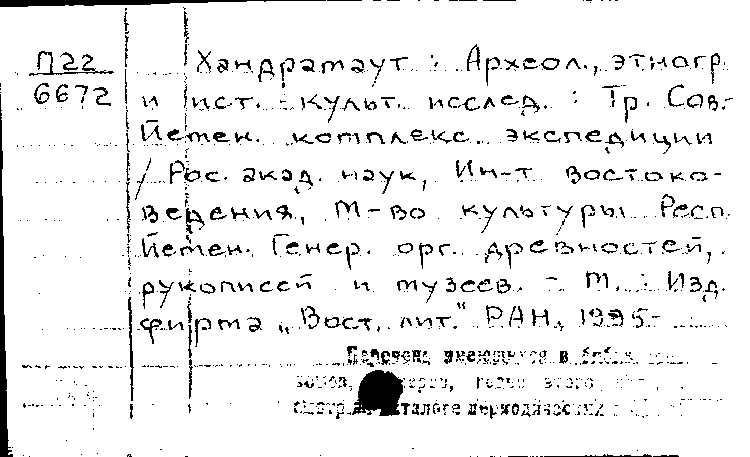 П22
6672
Хандрамаут : Археол., этногр.
и ист. - культ. исслед. : Тр. Сов.-
Йемен. комплекс. экспедиции
/ Рос. акад. наук, Ин-т востоко-
ведения, М-во культуры Респ.
Йемен. Генер. орг. древностей,
рукописей и музеев. - М. : Изд.
фирма „Вост. лит." РАН, 1995-
имеющихся в
этого
каталоге периодических